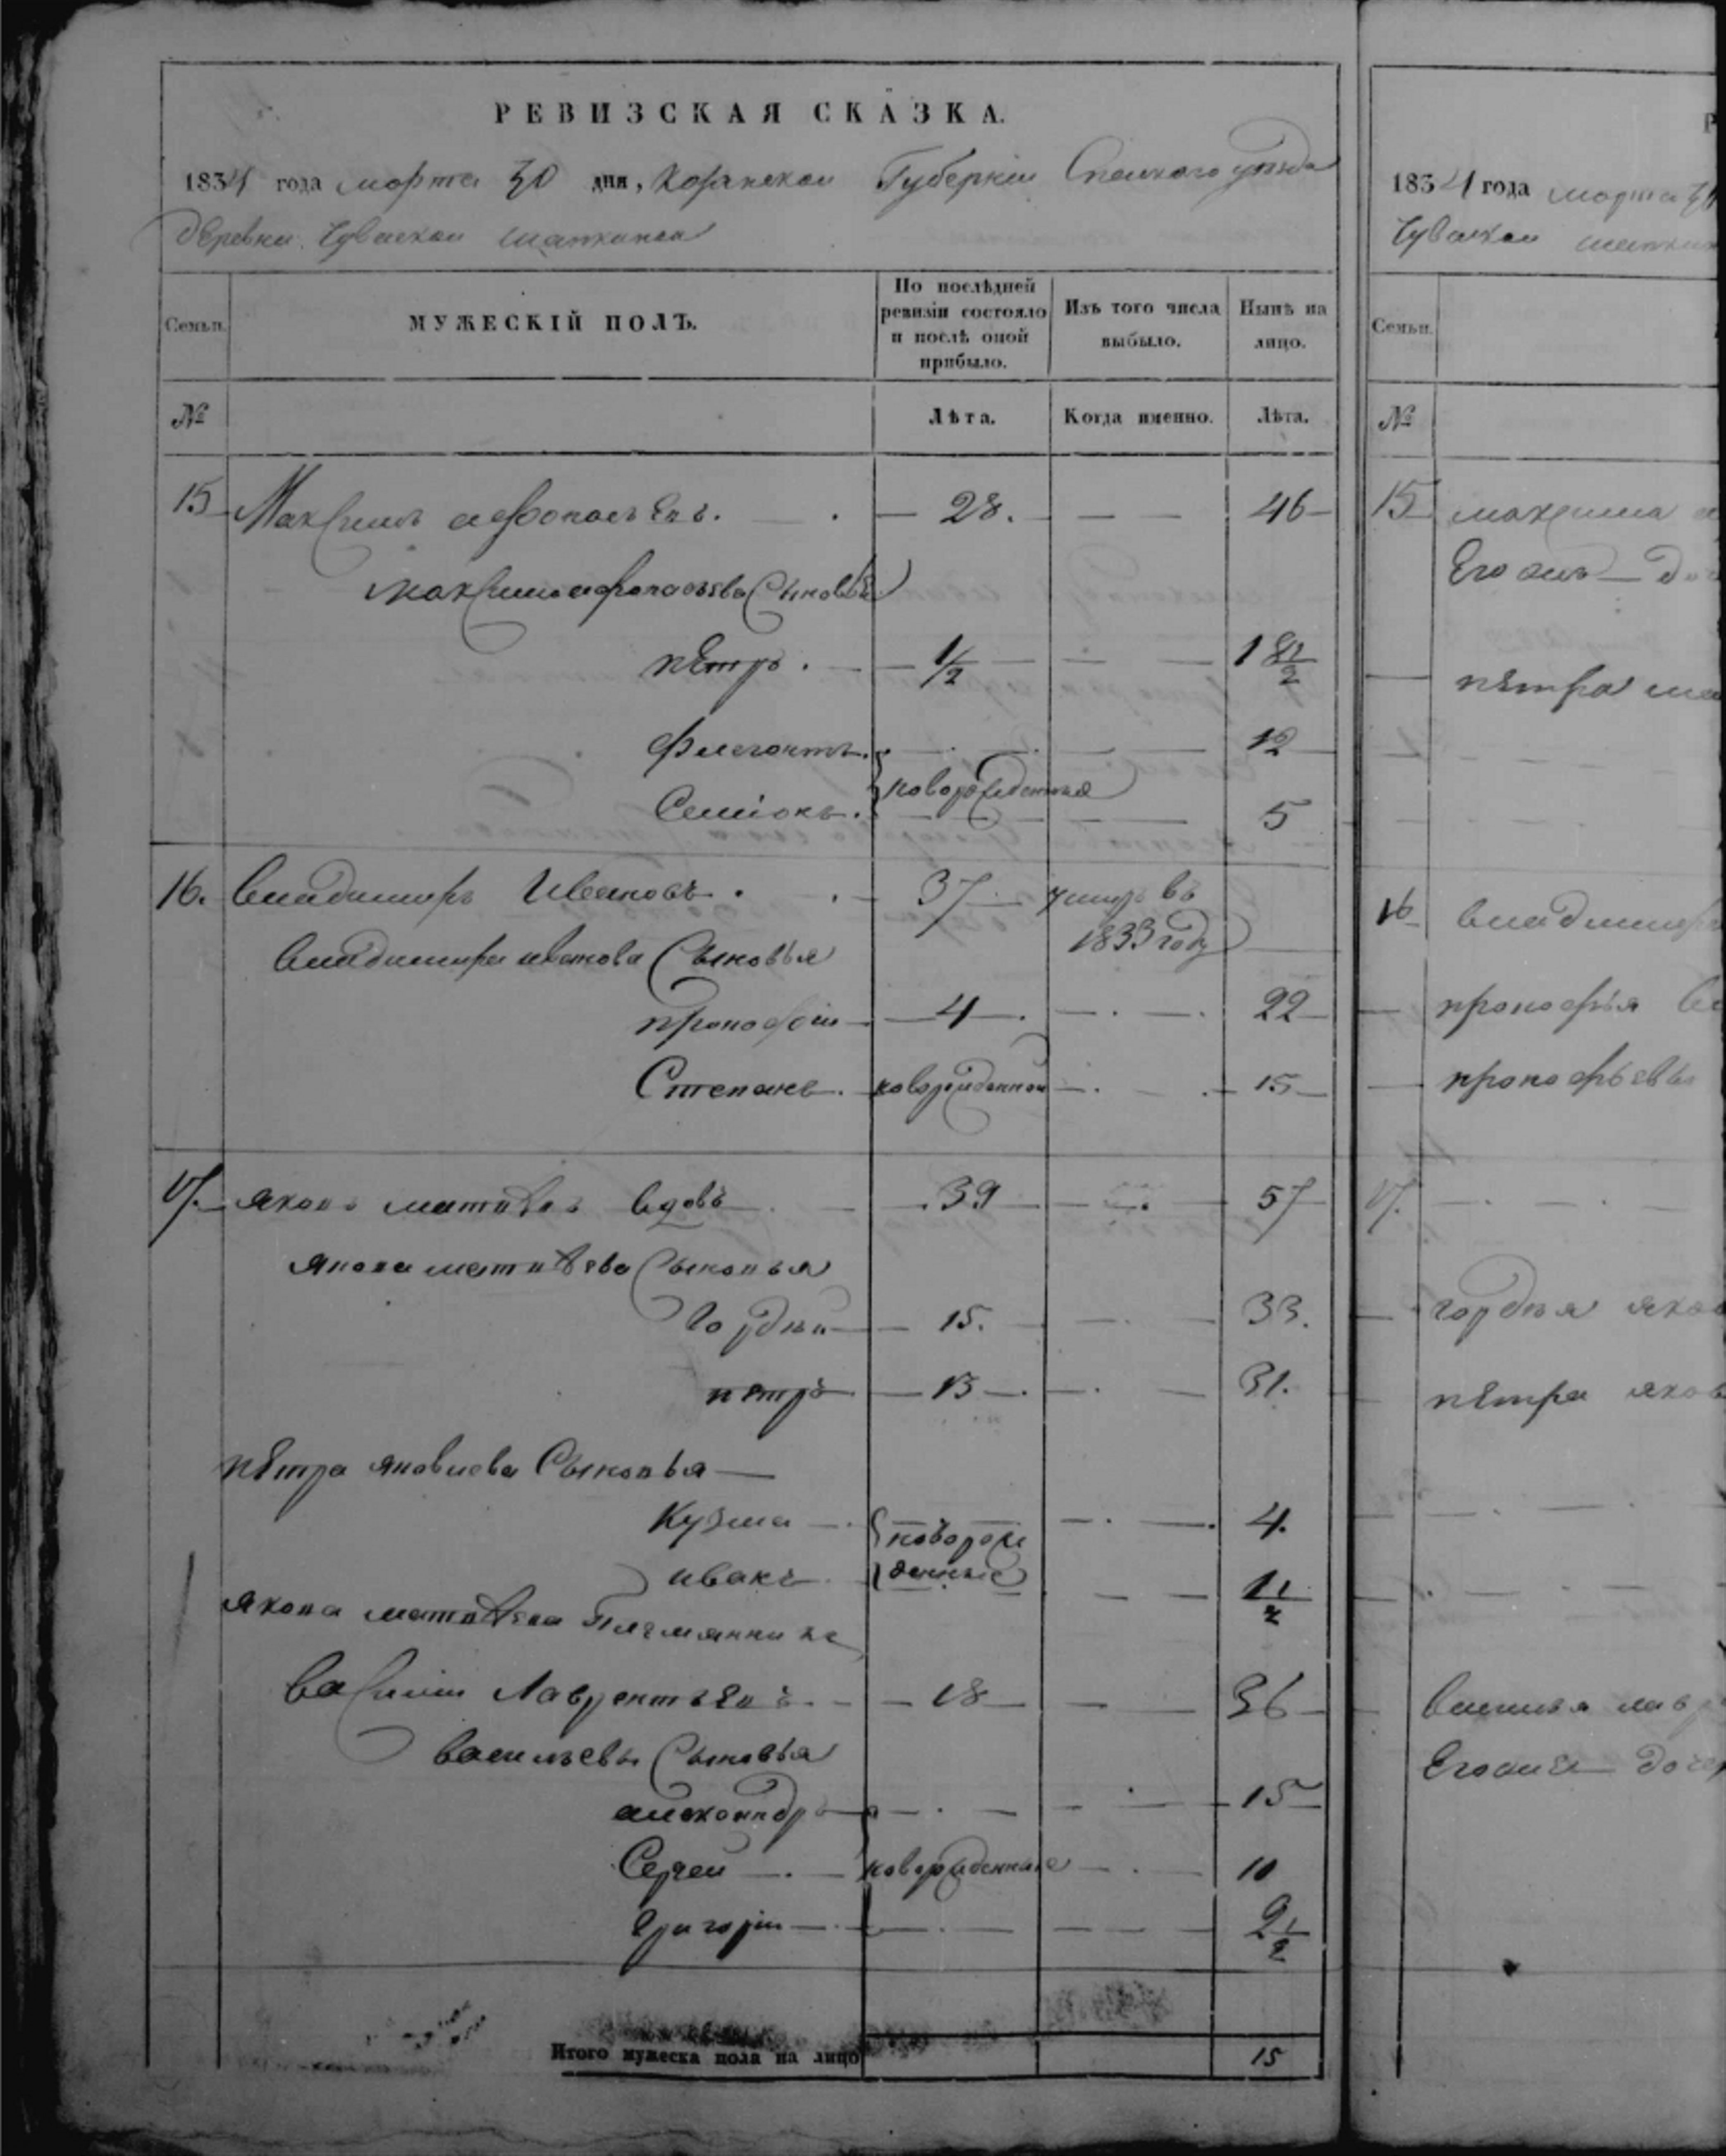 РЕВИЗСКАЯ СКАЗКА.
1834 года марта 30 дня, Казанской Губерніи Спаского уѣзда
деревни Чуваской шапкиной
Семьи.
МУЖЕСКІЙ ПОЛЪ.
По послѣдней ревизіи состояло и послѣ оной прибыло.
Изъ того числа выбыло.
Нынѣ на лицо.
№
Лѣта.
Когда именно.
Лѣта.
15 Максимъ афонасьевъ. 28. 46
максима афонасьева Сыновья
пЕтръ. 1/2 18 1/2
флегонтъ. 12
новорожденныя
Семіонъ. 5
16. Владимиръ Ивановъ. 37 умиръ въ 1833 году
Владимира иванова Сыновья
прокофiи 4 22
Степанъ. новорожденной 15
17. яковъ матвѣевъ вдовъ 39 57
якова матвѣева Сыновья
Гордѣй 15. 33.
пЕтръ 13 31.
пЕтра яковлева Сыновья
Кузма 4.
новорожденные
иванъ 1 1/2
якова матвѣева Племянникъ
Василiи Лаврентьевъ 18 36
васильевы Сыновья
александръ 15
Сергеи новорожденные 10
Григорiи 2 1/2
Итого мужеска пола на лицо 15
1834 года марта 30
Чуваской
Семьи.
№
15 максима
Его
пЕтра
16 владимира
прокофья
прокофьевы
17.
гордѣя яков
пЕтра яков
василья лавр
Его доче